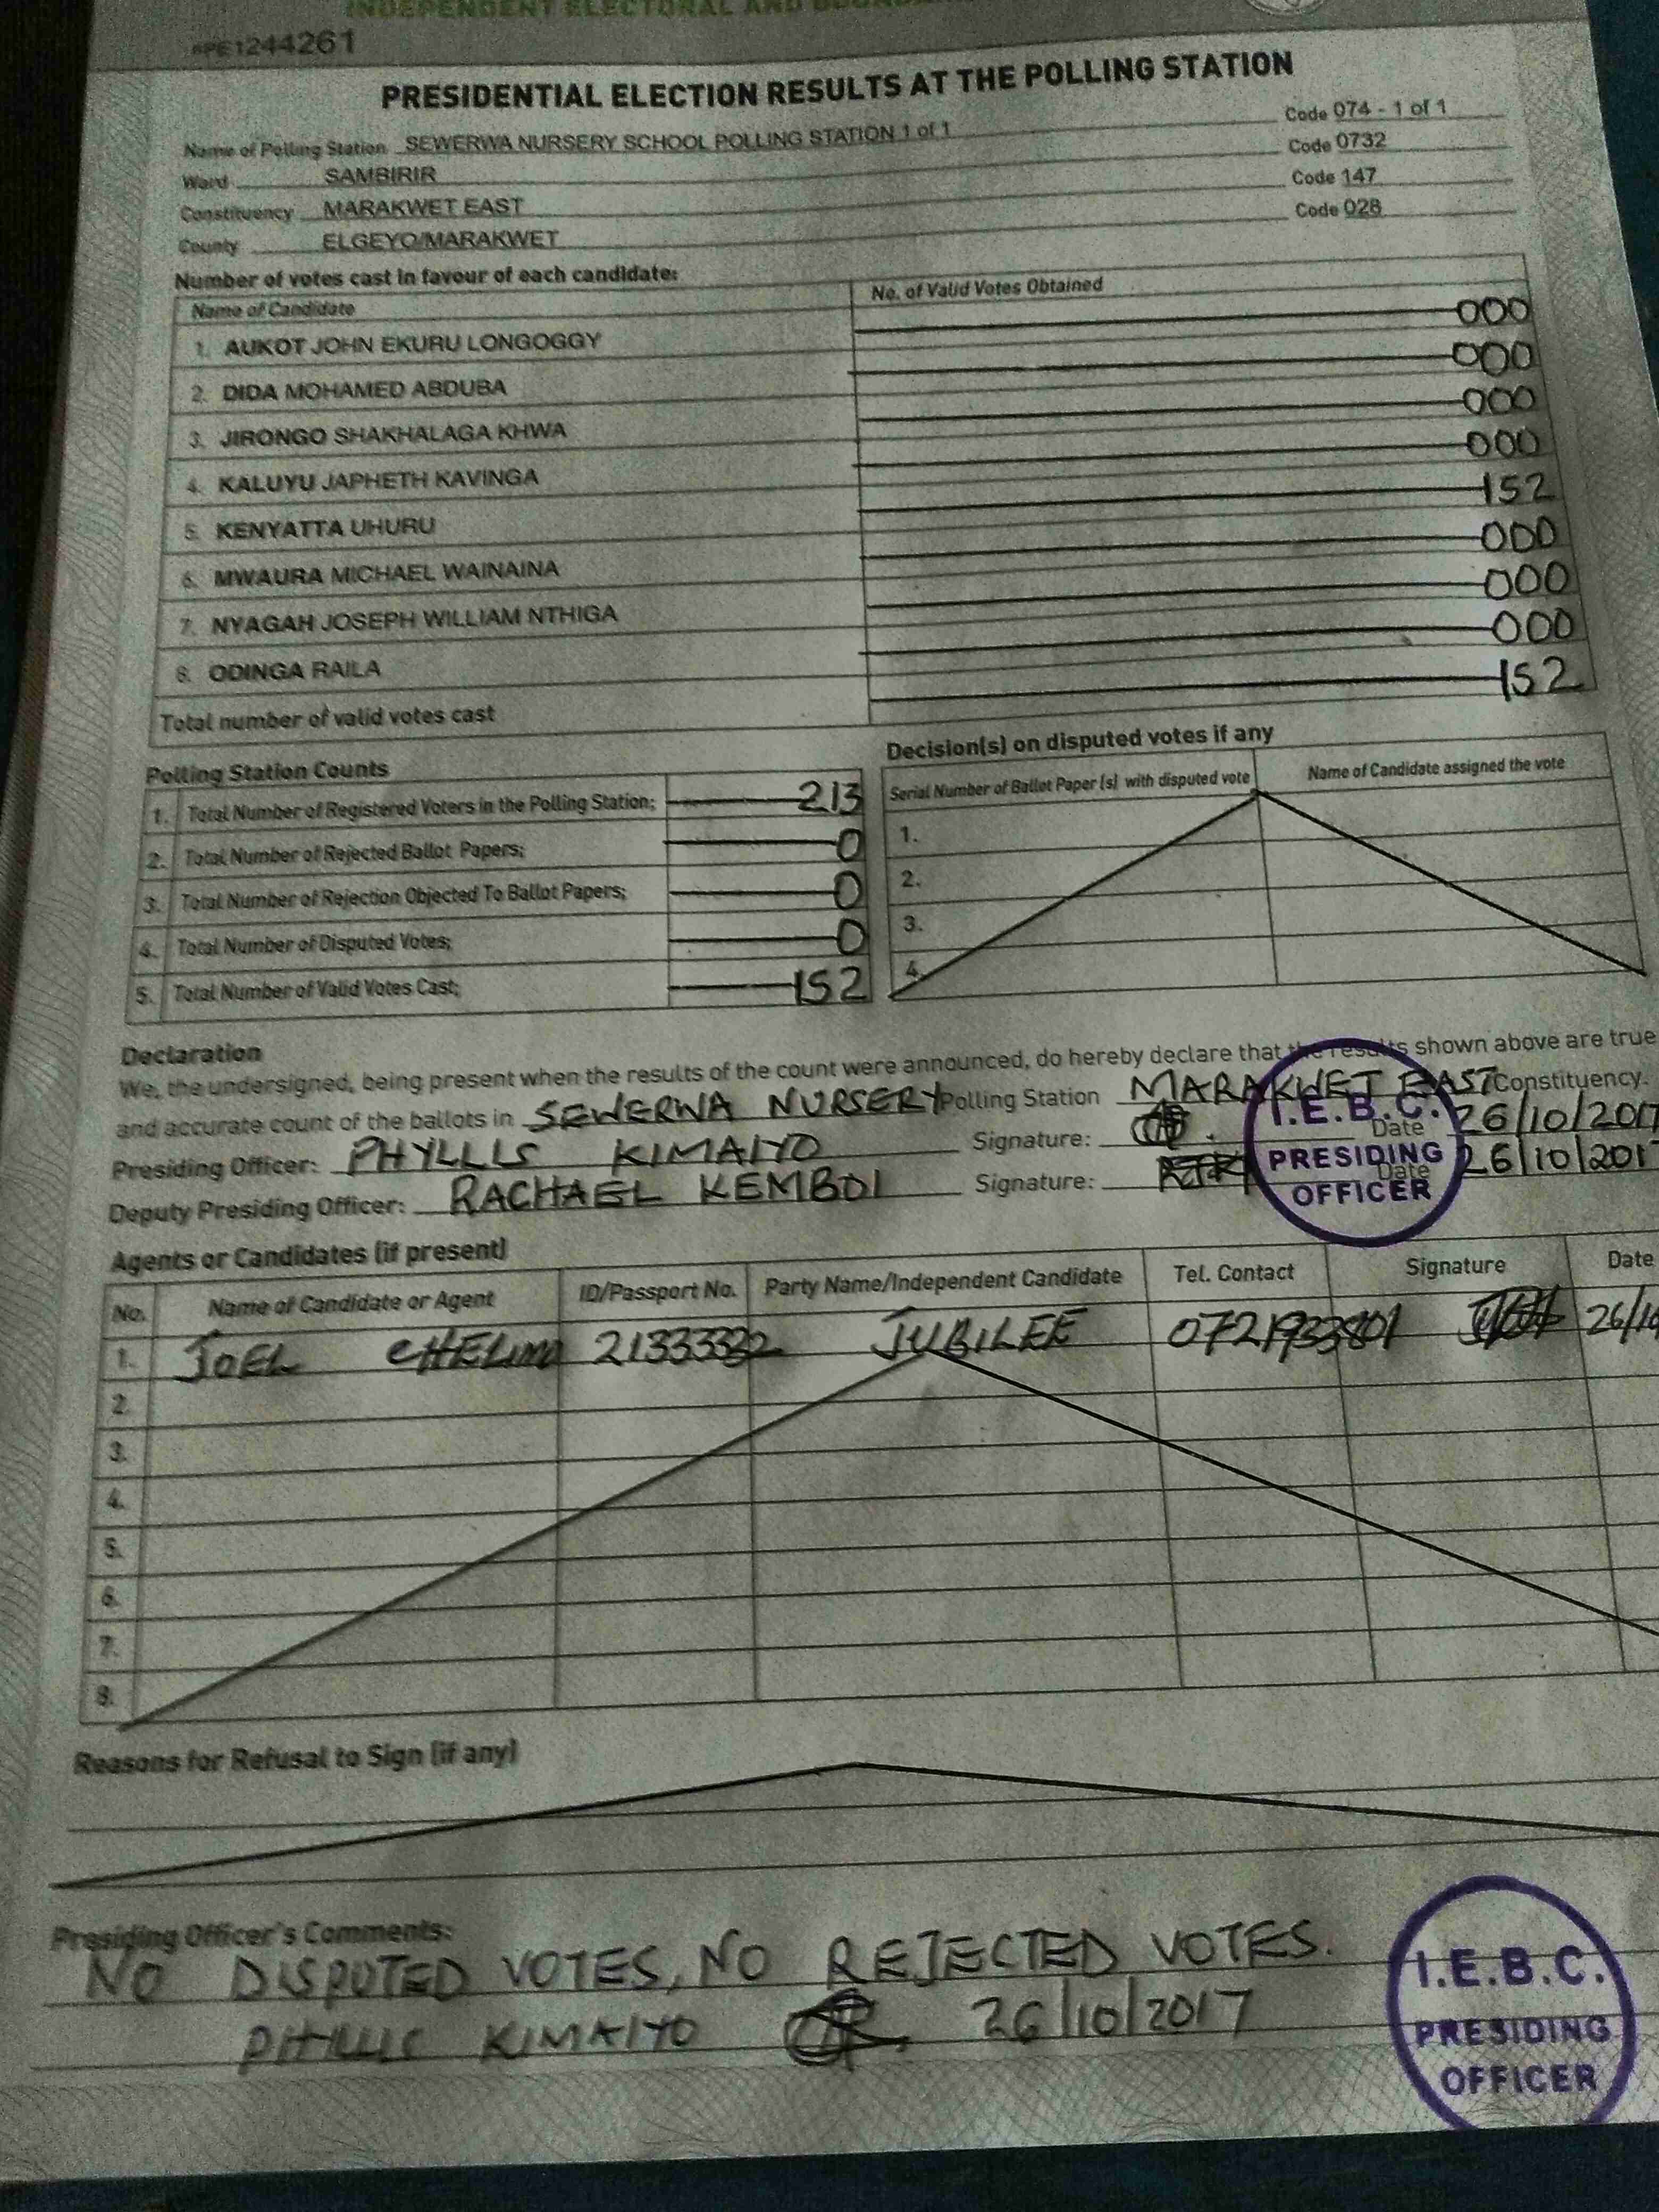 INDEPENDENT ELECTORAL AND
#PE1244261
PRESIDENTIAL ELECTION RESULTS AT THE POLLING STATION
Name of Polling Station SEWERWA NURSERY SCHOOL POLLING STATION 1 of 1 Code 074 - 1 of 1
Ward SAMBIRIR Code 0732
Constituency MARAKWET EAST Code 147
County ELGEYO/MARAKWET Code 028
Number of votes cast in favour of each candidate:
Name of Candidate No. of Valid Votes Obtained
1. AUKOT JOHN EKURU LONGOGGY 000
2. DIDA MOHAMED ABDUBA 000
3. JIRONGO SHAKHALAGA KHWA 000
4. KALUYU JAPHETH KAVINGA 000
5. KENYATTA UHURU 152
6. MWAURA MICHAEL WAINAINA 000
7. NYAGAH JOSEPH WILLIAM NTHIGA 000
8. ODINGA RAILA 000
Total number of valid votes cast 152
Polling Station Counts
1. Total Number of Registered Voters in the Polling Station; 213
2. Total Number of Rejected Ballot Papers; 0
3. Total Number of Rejection Objected To Ballot Papers; 0
4. Total Number of Disputed Votes; 0
5. Total Number of Valid Votes Cast; 152
Decision(s) on disputed votes if any
Serial Number of Ballot Paper (s) with disputed vote Name of Candidate assigned the vote
1.
2.
3.
4.
Declaration
We, the undersigned, being present when the results of the count were announced, do hereby declare that the results shown above are true
and accurate count of the ballots in SEWERWA NURSERY Polling Station MARAKWET EAST Constituency.
Presiding Officer: PHYLLIS KIMAIYO Signature: Date 26/10/2017
Deputy Presiding Officer: RACHAEL KEMBOI Signature: Date 26/10/2017
I.E.B.C.
PRESIDING
OFFICER
Agents or Candidates (if present)
No. Name of Candidate or Agent ID/Passport No. Party Name/Independent Candidate Tel. Contact Signature Date
1. JOEL 21333332 JUBILEE 0721933801 26/10
2.
3.
4.
5.
6.
7.
8.
Reasons for Refusal to Sign (if any)
Presiding Officer's Comments:
NO DISPUTED VOTES, NO REJECTED VOTES.
PHYLLIS KIMAIYO 26/10/2017
I.E.B.C.
PRESIDING
OFFICER